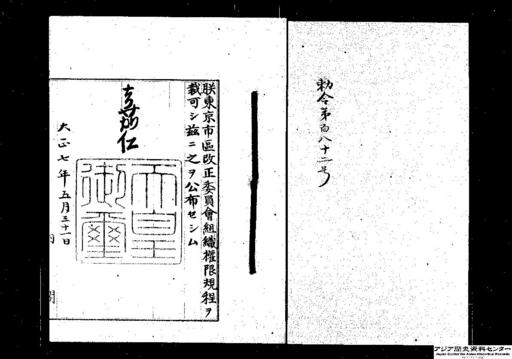 勅令第百八十二号
朕東京市區改正委員會組織權限規程ヲ
裁可シ茲ニ之ヲ公布セシム
嘉仁
天皇
御璽
大正七年五月三十一日
アジア歴史資料センター
Japan Center for Asian Historical Records